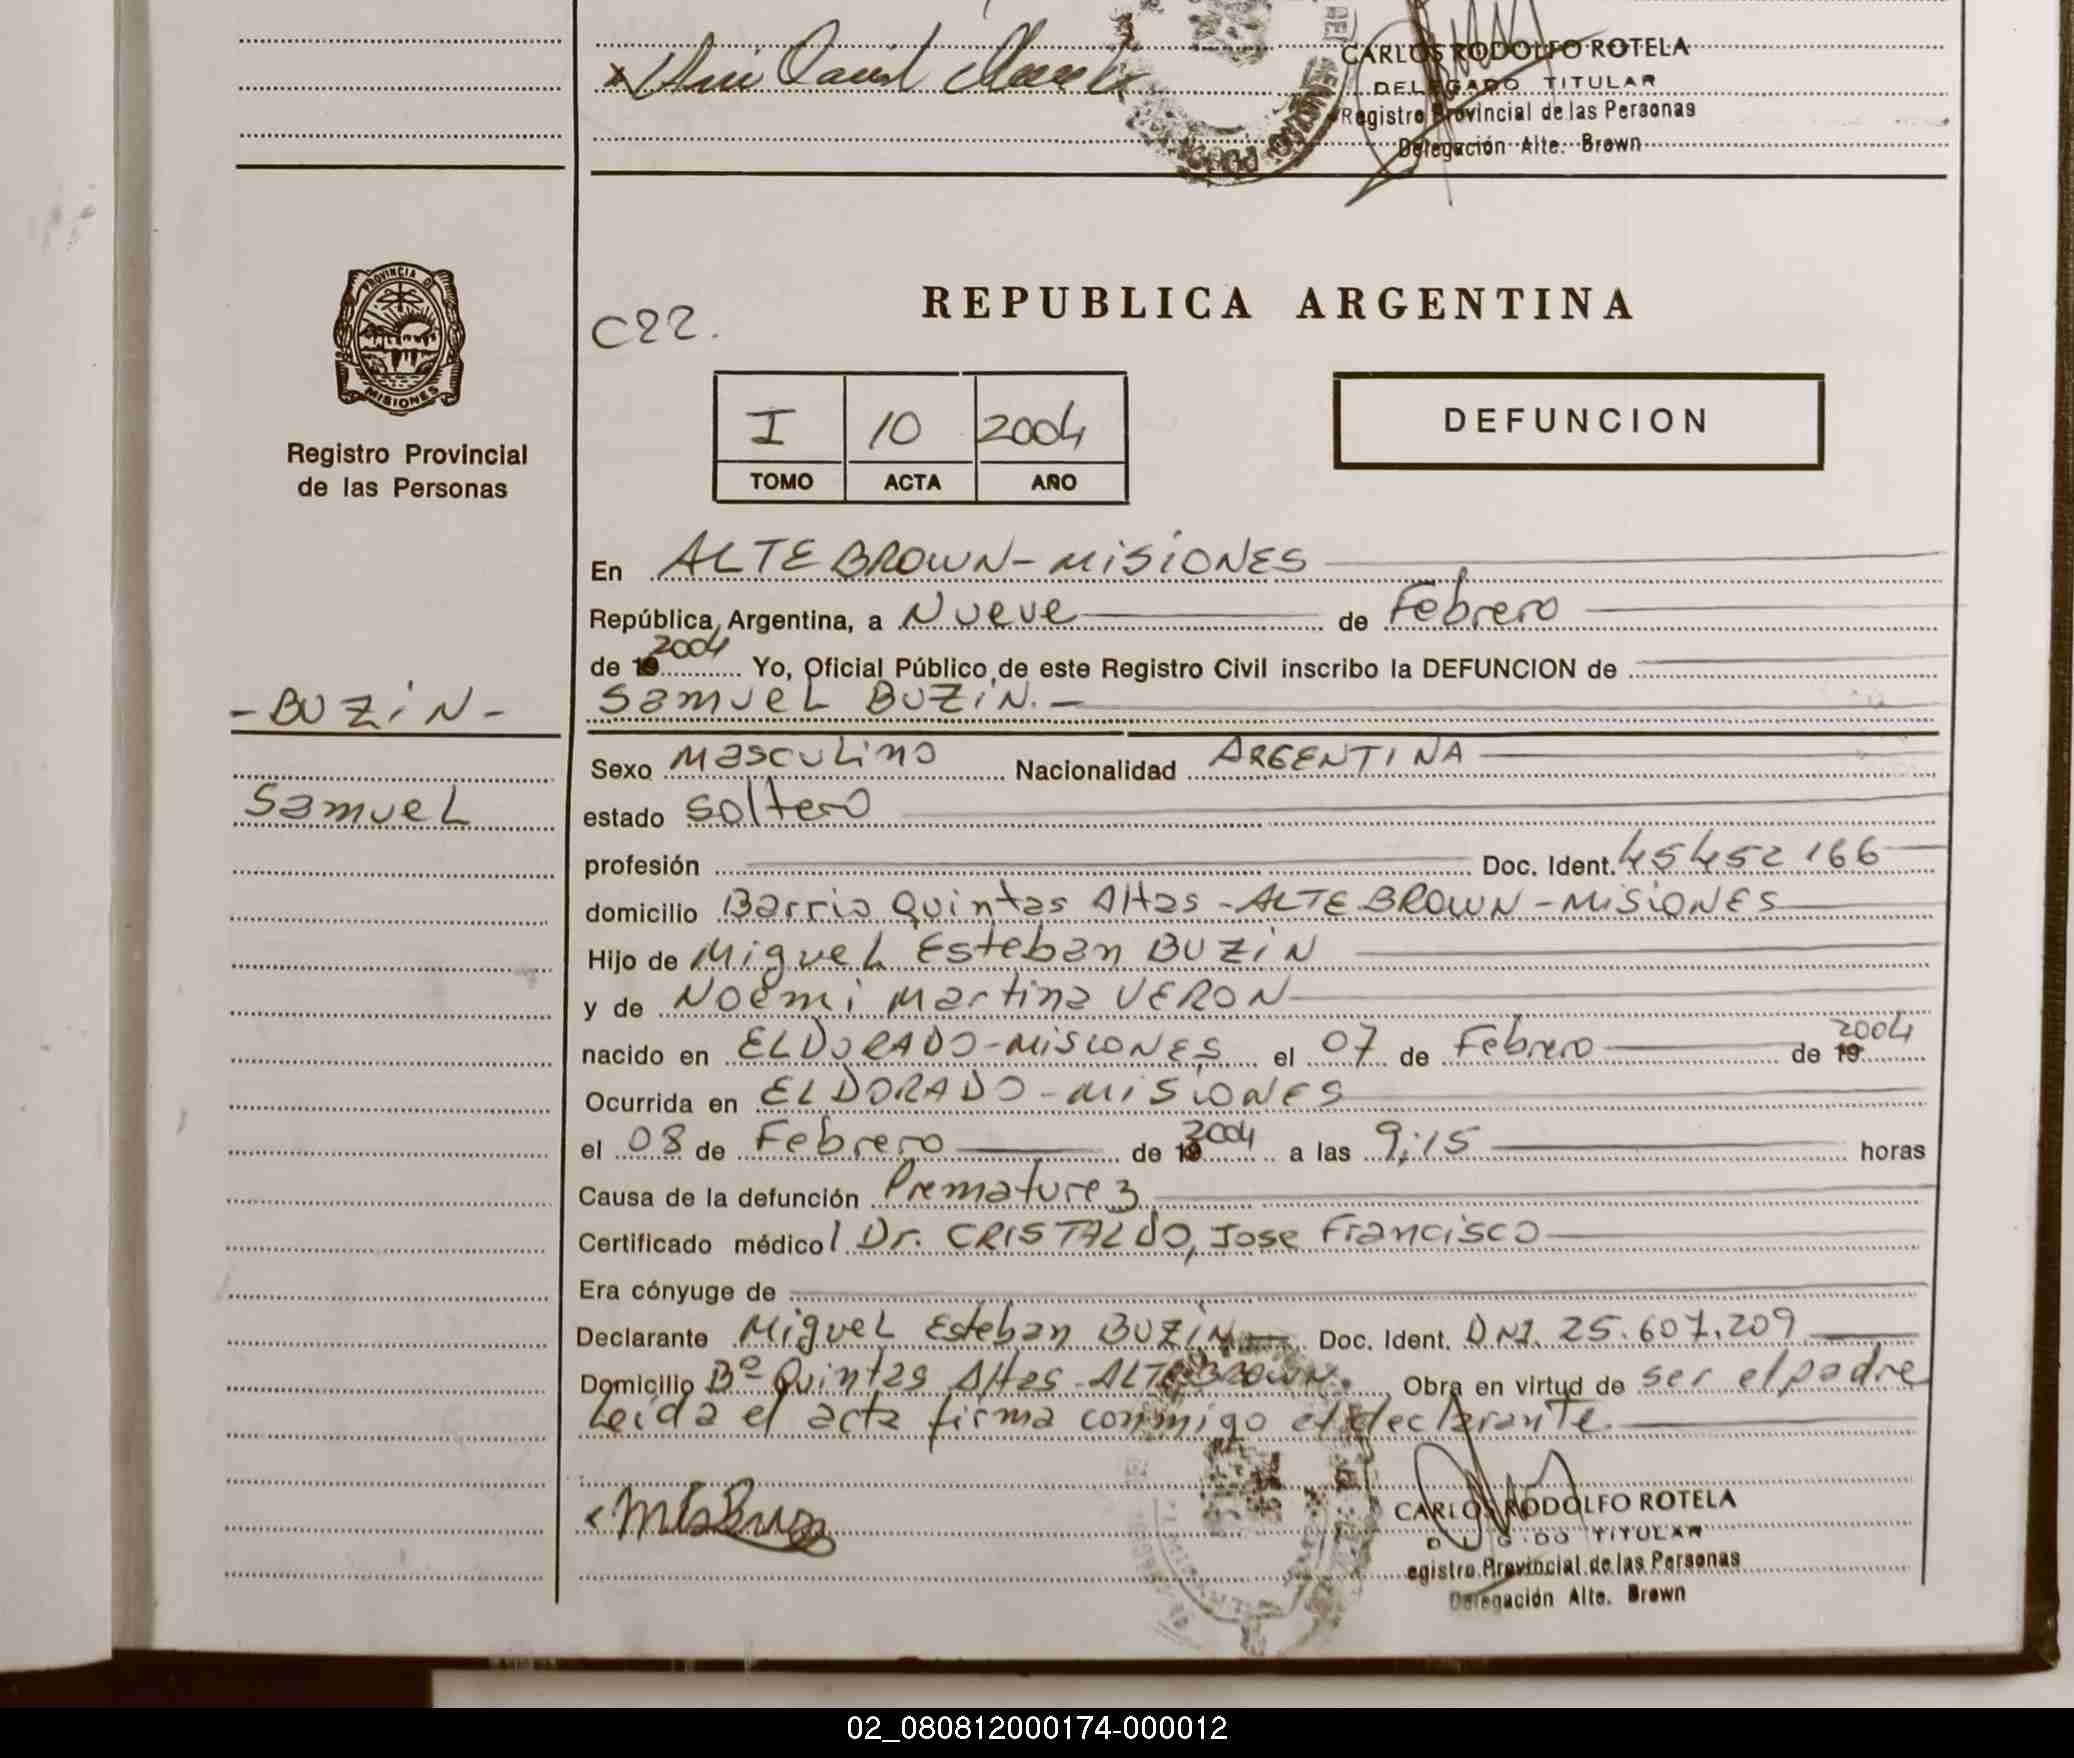 CARLOS RODOLFO ROTELA
DELEGADO TITULAR
Registro Provincial de las Personas
Delegación Alte. Brown
PROVINCIA DE
MISIONES
Registro Provincial
de las Personas
C22.
REPUBLICA ARGENTINA
I 10 2004
TOMO ACTA AÑO
DEFUNCION
En ALTE BROWN-MISIONES
República Argentina, a Nueve de Febrero
de 19 2004 Yo, Oficial Público de este Registro Civil inscribo la DEFUNCION de
-BUZIN- Samuel BUZIN.-
Sexo Masculino Nacionalidad ARGENTINA
Samuel
estado Soltero
profesión Doc. Ident. 45452166
domicilio Barrio Quintas Altas-ALTE BROWN-MISIONES
Hijo de Miguel Esteban BUZIN
y de Noemi Martina VERON
nacido en ELDORADO-MISIONES el 07 de Febrero de 19 2004
Ocurrida en ELDORADO-MISIONES
el 08 de Febrero de 19 2004 a las 9:15 horas
Causa de la defunción Prematurez
Certificado médico Dr. CRISTALDO, Jose Francisco
Era cónyuge de
Declarante Miguel Esteban BUZIN Doc. Ident. DNI. 25.607.209
Domicilio Bº Quintas Altas-ALTE BROWN. Obra en virtud de ser el padre
Leida el acta firma conmigo el declarante.
CARLOS RODOLFO ROTELA
D L G DO TITULAR
egistro Provincial de las Personas
Delegación Alte. Brown
02_080812000174-000012